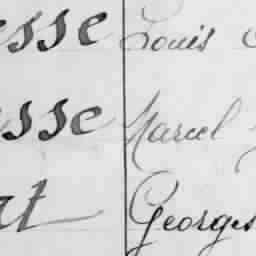 esse Louis
esse Marcel
rt Georges